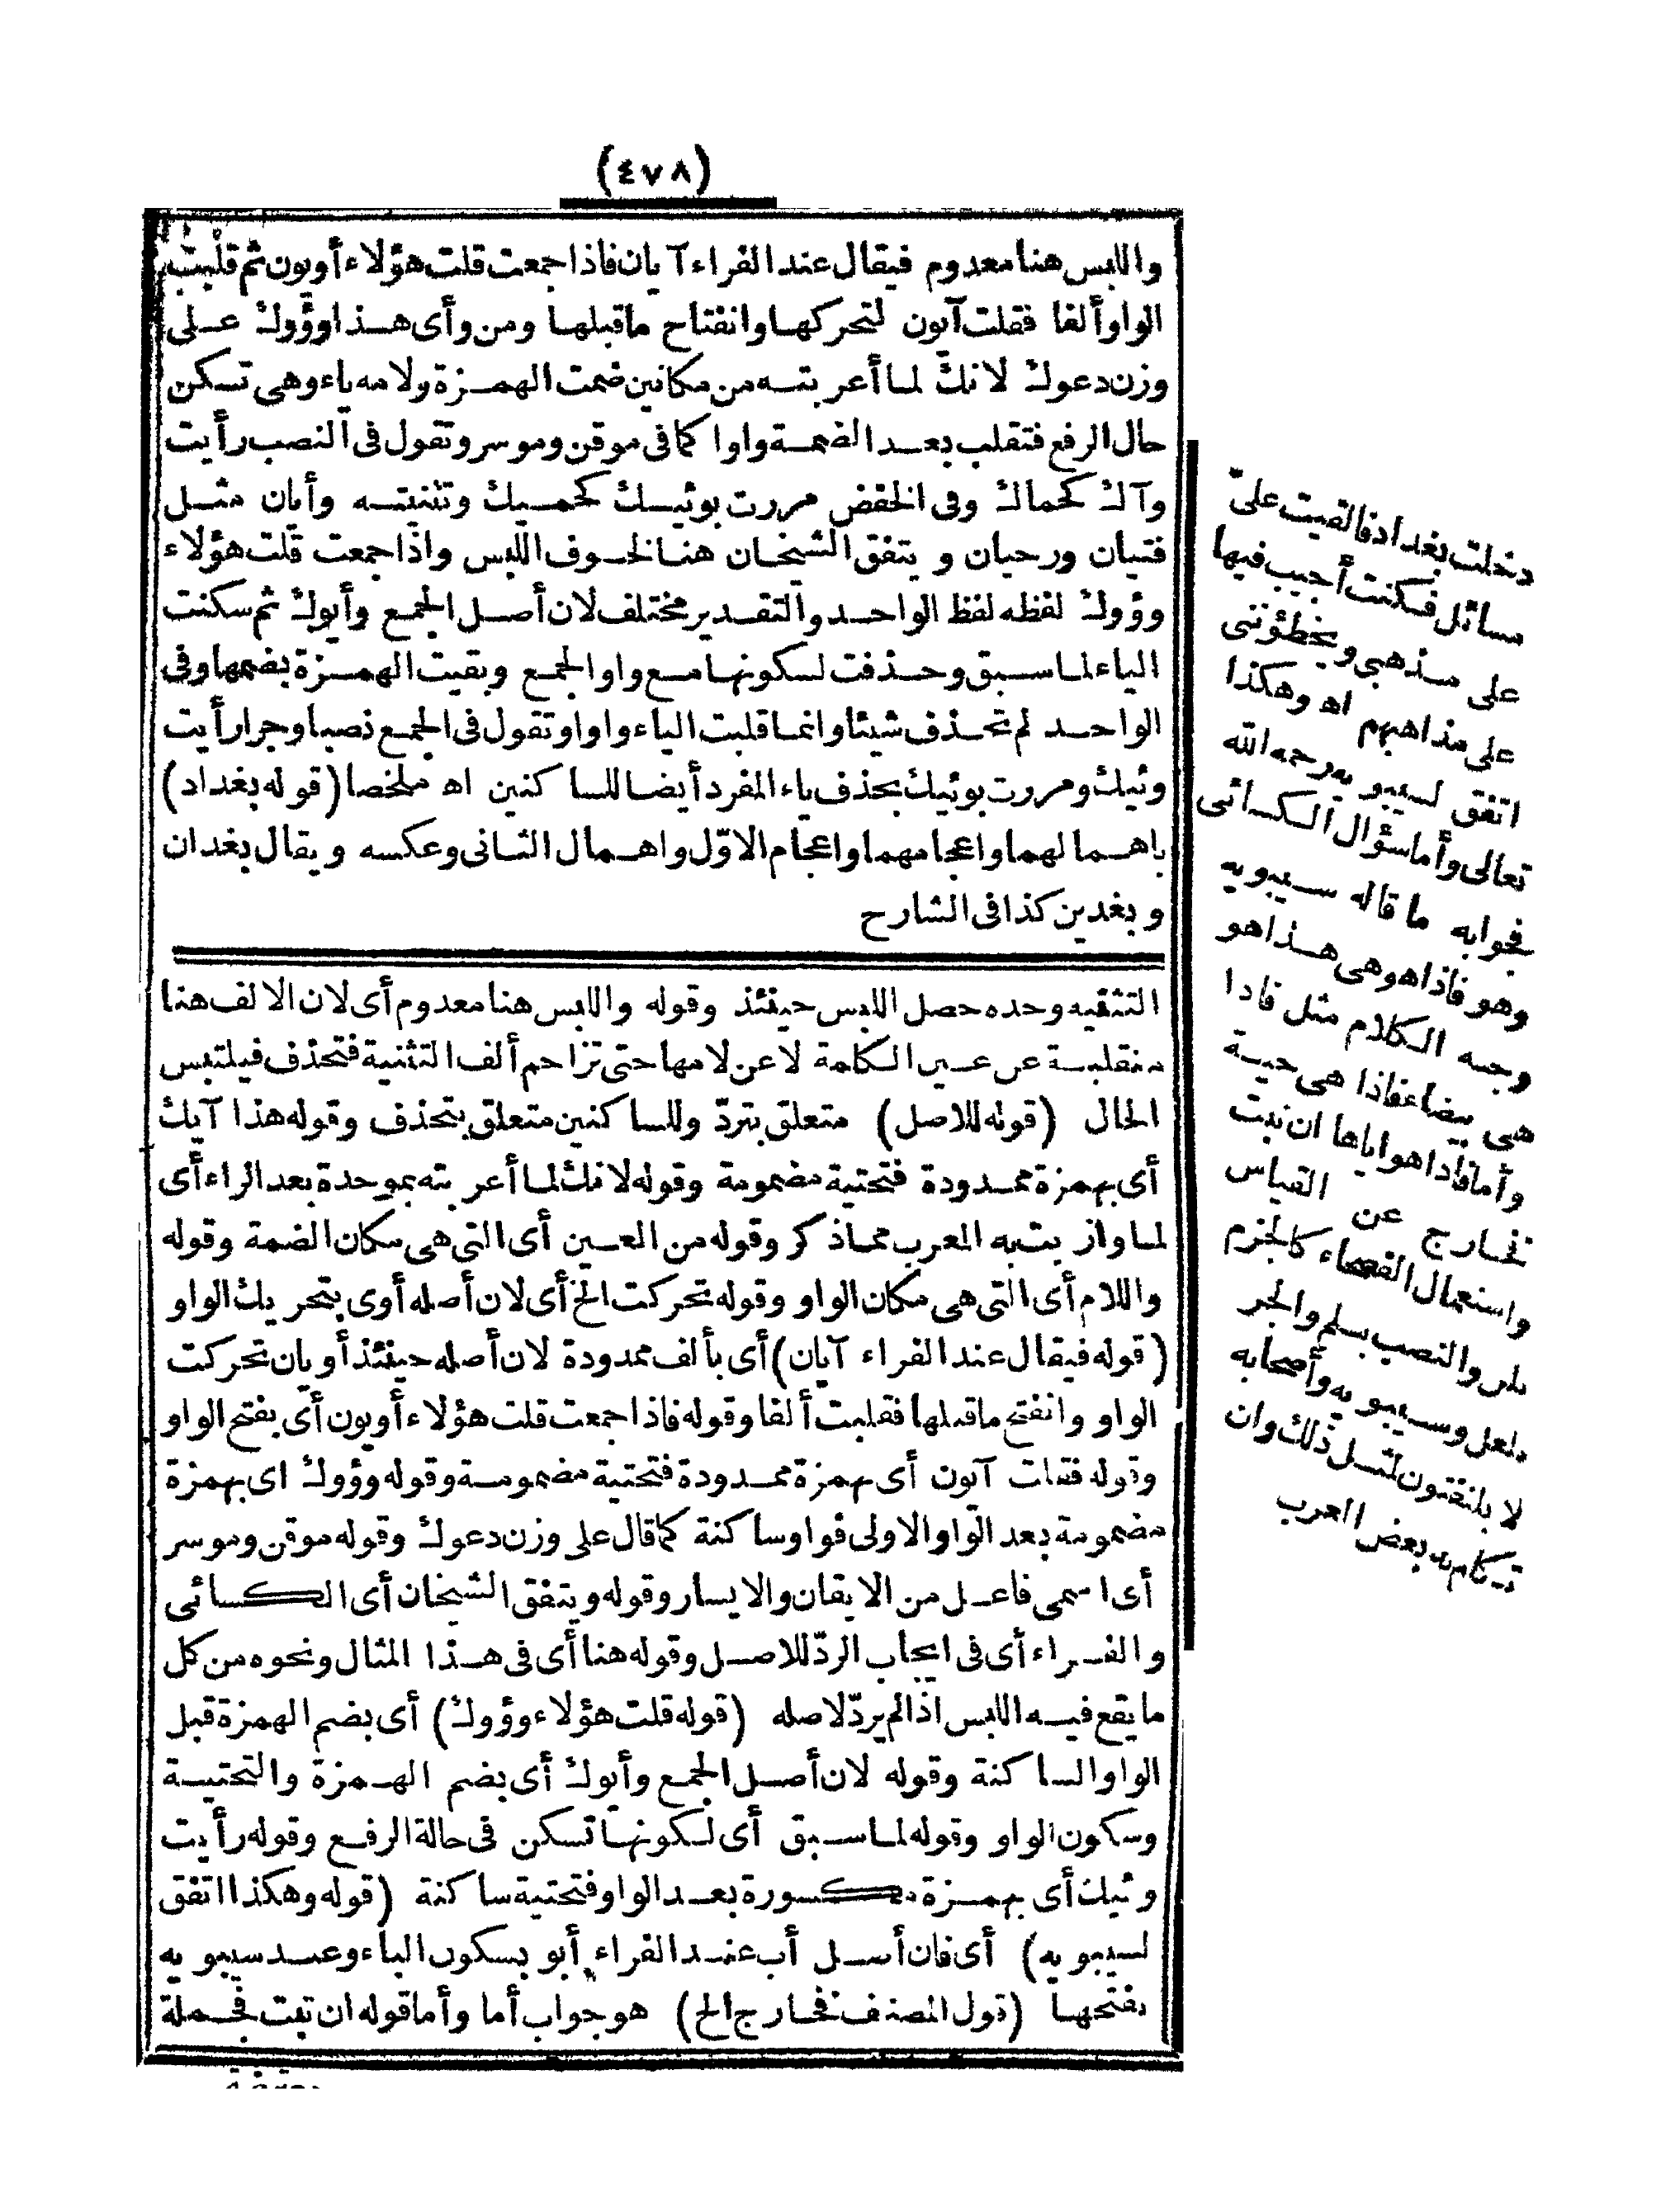 (٤٧٨)
واللبس هنا معدوم فيقال عند الفراء آيان فاذا جمعت قلت هؤلاء أويون ثم قلبت
الواو ألفا فقلت آيون لتحركها وانفتاح ماقبلها ومن وأى هذا وؤوك على
وزن دعوك لانك لما أعربته من مكانين ضمت الهمزة ولامه ياء وهى تسكن
حال الرفع فتقلب بعد الضمة واوا كمافى موقن وموسر وتقول فى النصب رأيت
وآك كحماك وفى الخفض مررت بوئيك كحميك وتثنيته وأيان مثل
فتيان ورحيان ويتفق الشيخان هنا لخوف اللبس واذا جمعت قلت هؤلاء
وؤوك لفظه لفظ الواحد والتقدير مختلف لان أصل الجمع وأيوك ثم سكنت
الياء لما سبق وحذفت لسكونها مع واو الجمع وبقيت الهمزة بضمها وفى
الواحد لم تحذف شيئا وانما قلبت الياء واوا وتقول فى الجمع نصبا وجرا رأيت
وئيك ومررت بوئيك بحذف ياء المفرد أيضا للساكنين اه ملخصا (قوله بغداد)
باهمالهما واعجامهما واعجام الاوّل واهمال الثانى وعكسه ويقال بغدان
وبغدين كذافى الشارح
دخلت بغداد فالقيت علىّ
مسائل فكنت أجيب فيها
على مذهبى ويخطؤننى
على مذاهبهم اه وهكذا
اتفق لسيبويه رحمه الله
تعالى وأما سؤال الكسائى
فجوابه ما قاله سيبويه
وهو فاذا هو هى هذا هو
وجه الكلام مثل فاذا
هى بيضاء فاذا هى حية
وأما فاذا هو اياها ان ثبت
فخارج عن القياس
واستعمال الفصحاء كالجزم
بلن والنصب بلم والجر
بلعل وسيبويه وأصحابه
لا يلتفتون لمثل ذلك وان
تكلم به بعض العرب
التثقيه وحده حصل اللبس حينئذ وقوله واللبس هنا معدوم أى لان الالف هنا
منقلبة عن عين الكلمة لا عن لامها حتى تزاحم ألف التثنية فتحذف فيلتبس
الحال (قوله للاصل) متعلق بتردّ وللساكنين متعلق بتحذف وقوله هذا آيك
أى بهمزة ممدودة فتحتية مضمومة وقوله لانك لما أعربته بموحدة بعد الراء أى
لما وازيت به المعرب مما ذكر وقوله من العين أى التى هى مكان الضمة وقوله
واللام أى التى هى مكان الواو وقوله تحركت الخ أى لان أصله أوى بتحريك الواو
(قوله فيقال عند الفراء آيان) أى بألف ممدودة لان أصله حينئذ أويان تحركت
الواو وانفتح ماقبلها فقلبت ألفا وقوله فاذا جمعت قلت هؤلاء أويون أى بفتح الواو
وقوله فقلت آيون أى بهمزة ممدودة فتحتية مضمومة وقوله وؤوك اى بهمزة
مضمومة بعد الواو الاولى فواو ساكنة كما قال على وزن دعوك وقوله موقن وموسر
أى اسمى فاعل من الايقان والايسار وقوله ويتفق الشيخان أى الكسائى
والفراء أى فى ايجاب الردّ للاصل وقوله هنا أى فى هذا المثال ونحوه من كل
مايقع فيه اللبس اذا لم يردّ لاصله (قوله قلت هؤلاء وؤوك) أى بضم الهمزة قبل
الواو الساكنة وقوله لان أصل الجمع وأيوك أى بضم الهمزة والتحتية
وسكون الواو وقوله لما سبق أى لكونها تسكن فى حالة الرفع وقوله رأيت
وئيك أى بهمزة مكسورة بعد الواو فتحتية ساكنة (قوله وهكذا اتفق
لسيبويه) أى فان أصل أب عند الفراء أبو بسكون الباء وعند سيبويه
بفتحها (قول المصنف فخارج الخ) هو جواب أما وأما قوله ان ثبت فجملة